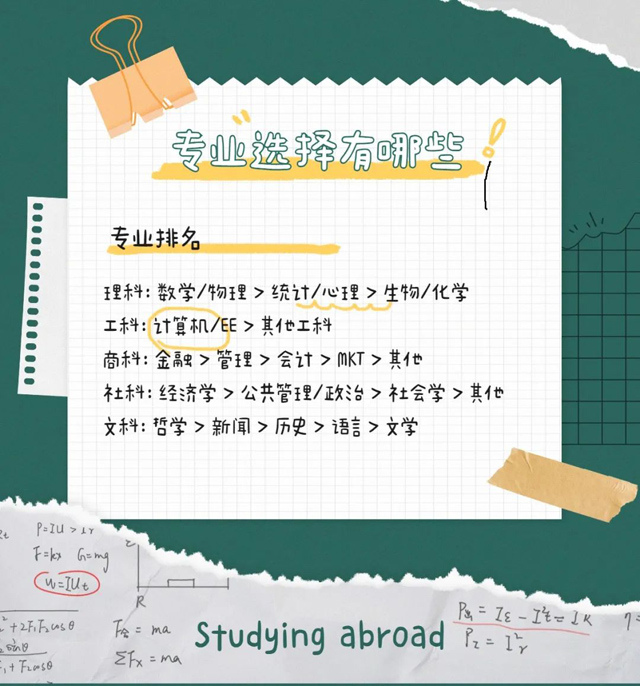 专业选择有哪些!
专业排名
理科: 数学/物理 > 统计/心理 > 生物/化学
工科: 计算机/EE > 其他工科
商科: 金融 > 管理 > 会计 > MKT > 其他
社科: 经济学 > 公共管理/政治 > 社会学 > 其他
文科: 哲学 > 新闻 > 历史 > 语言 > 文学
F=kx G=mg
W=IUt
R
ΣFx = ma
Studying abroad